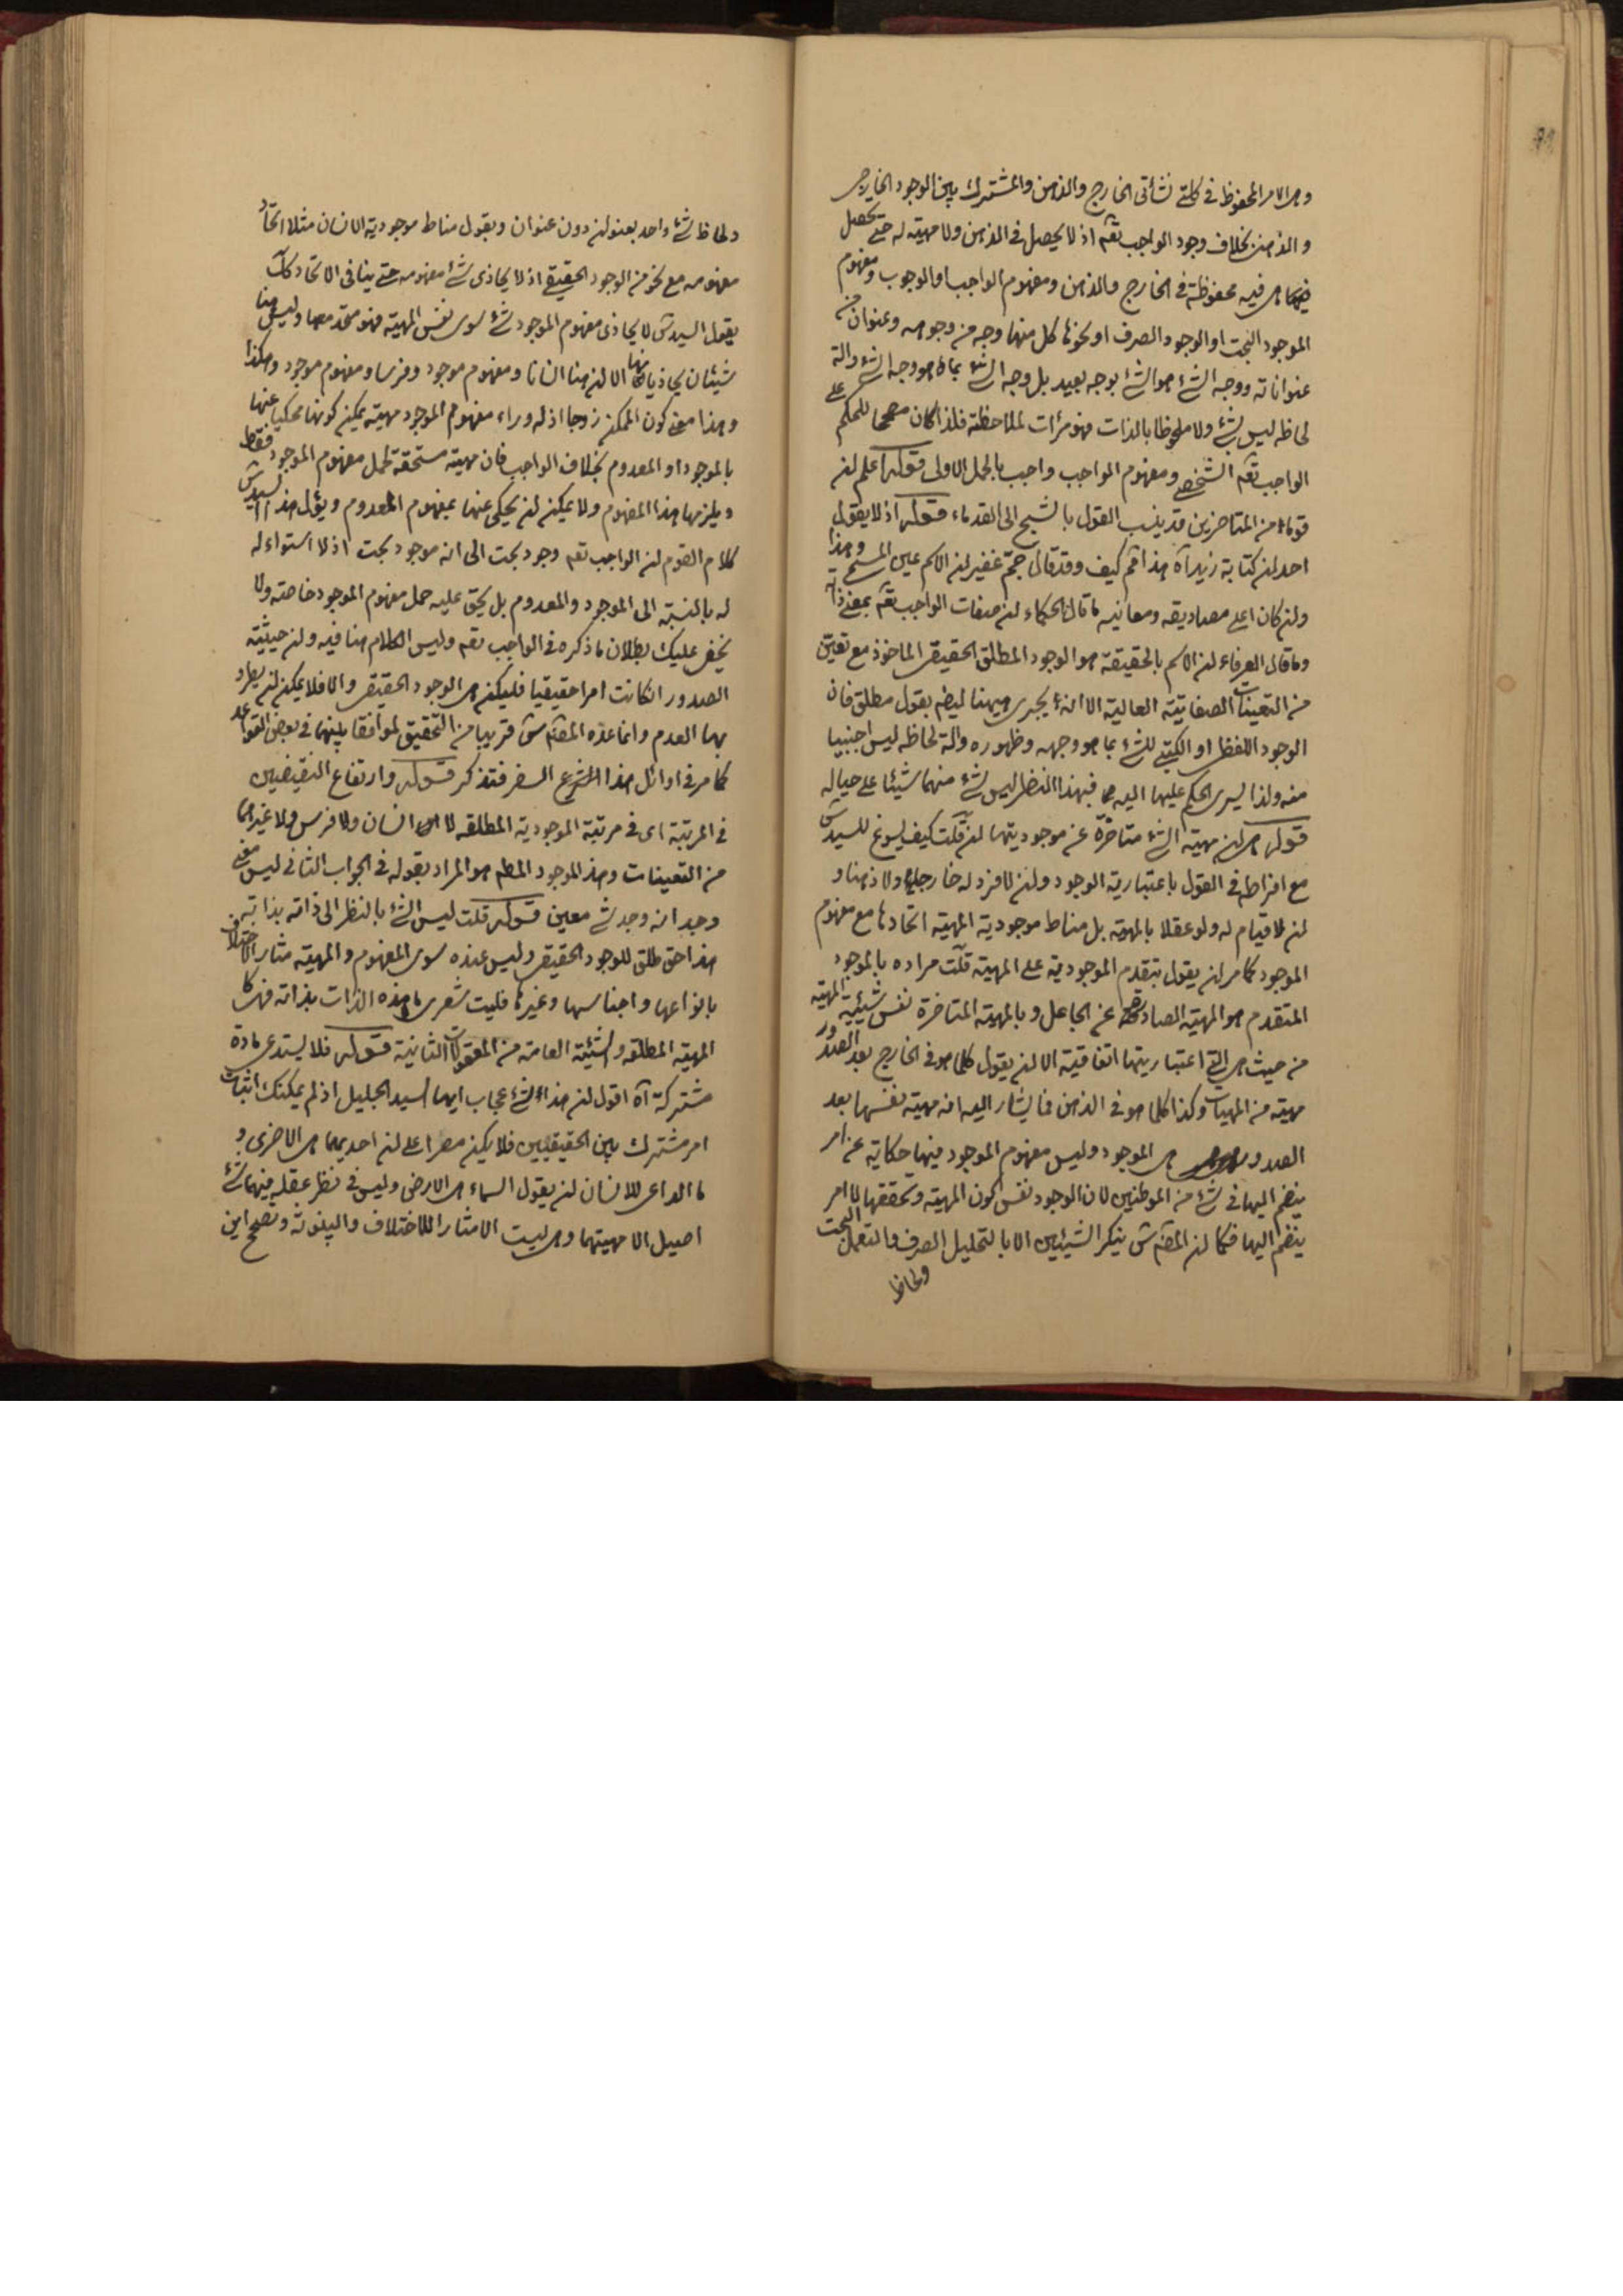 وهى الامر المحفوظ فى كلتى نشأتى الخارج والذهن والمشترك بين الوجود الخارجى
و الذهنى بخلاف وجود الواجب تعم اذ لا يحصل فى الذهن ولا مهيته له حتى تحصل
فيهما هى فيه محفوظة فى الخارج والذهن ومفهوم الواجب او الوجوب ومفهوم
الموجود البحت او الوجود الصرف او نحوها كل منها وجه من وجوهه وعنوان من
عنواناته ووجه الشئ هو الشئ بوجه بعيد بل وجه الشئ بما هو وجه الشئ والة
لحاظه ليس بشئ ولا ملحوظا بالذات فهو مرأت لملاحظته فلذا كان مصححا للحكم على
الواجب تعم الشخصى ومفهوم الواجب واجب بالحمل الاولى قوله اعلم لن
قوما من المتاخرين قد ينسب القول بالشبح الى القدماء قوله اذ لا يقول
احد لن كتابة زيد آه هذا فم كيف وقد قال جم غفير لن الاسم عين المسمى وهذا
ولن كان اعلى مصاديقه ومعانيه ما قال الحكماء لن صفات الواجب تعم بمعنى ذاته
وما قال العرفاء لن الاسم بالحقيقة هو الوجود المطلق الحقيقى الماخوذ مع تعين
من التعينات الصفاتية العالية الا انه يجرى ههنا ايضم بقول مطلق فان
الوجود اللفظى او الكتبى للشئ بما هو وجهه وظهوره والة لحاظه ليس اجنبيا
منه ولذا يسرى الحكم عليها اليه فبهذا النظر ليس شئ منهما شيئا على حياله
قوله هى لن مهية الشئ متاخرة عن موجوديتها لن قلت كيف يسوغ للسيد س
مع افراطه فى القول باعتبارية الوجود ولن لا فرد له خارجا ولا ذهنا و
لن لا قيام له ولو عقلا بالمهية بل مناط موجودية المهية اتحادها مع مفهوم
الموجود كمامر لن يقول بتقدم الموجودية على المهية قلت مراده بالموجود
المتقدم هو المهية الصادرة عن الجاعل وبالمهية المتاخرة نفس شيئية المهية
من حيث هى التى اعتباريتها اتفاقية الا لن يقول كلما هو فى الخارج بعد الصدور
مهية من المهيات وكذا كلما هو فى الذهن فما يشار اليه انه مهية نفسها بعد
الصدور هى الموجود وليس مفهوم الموجود فيها حكاية عن امر
ينضم اليها فى شئ من الموطنين لان الوجود نفس كون المهية وتحققها لا امر
ينضم اليها فكما لن المصم س ينكر الشيئين الا بالتحليل الصرف والتعمل البحت
ولحاظ
ولحاظ شئ واحد بعنوانين دون عنوان ويقول مناط موجودية الانسان مثلا اتحاد
مفهومه مع نحو من الوجود الحقيقى اذ لا يحاذى شئ مفهومه حتى ينافى الاتحاد كك
يقول السيد س لا يحاذى مفهوم الموجود شئ سوى نفس المهية فهو متحد معها وليس هنا
شيئان يحاذيانهما الا لن هنا انسانا ومفهوم موجود وفرسا ومفهوم موجود وهكذا
وهذا معنى كون الممكن زوجا اذ له وراء مفهوم الموجود مهية يمكن كونها محكيا عنها
بالموجود او المعدوم بخلاف الواجب فان مهيته مستحقة لحمل مفهوم الموجود فقط
ويلزمها هذا المفهوم ولا يمكن لن يحكى عنها بمفهوم المعدوم ويؤل هذا السيد س
كلام القوم لن الواجب تعم وجود بحت الى انه موجود بحت اذ لا استواء له
له بالنسبة الى الموجود والمعدوم بل يحق عليه حمل مفهوم الموجود خاصة ولا
يخفى عليك بطلان ما ذكره فى الواجب تعم وليس الكلام هنا فيه ولن حيثية
الصدور انكانت امرا حقيقيا فليكن هى الوجود الحقيقى والا فلا يمكن لن يطرد
بها العدم وانما عده المصم س قريبا من التحقيق لموافقا بينهما فى بعض القواعد
كما مر فى اوائل هذا السفر فتذكر قوله وارتفاع النقيضين
فى المرتبة اى فى مرتبة الموجودية المطلقه لا انسان ولا فرس ولا غيرهما
من التعينات وهذا الموجود المطم هو المراد بقوله فى الجواب الثانى ليس معنى
وجد انه وجد شئ معين قوله قلت ليس الشئ بالنظر الى ذاته بذاته
هذا حق طلق للوجود الحقيقى وليس عنده سوى المفهوم والمهية مثار الاختلاف
بانواعها واجناسها وغيرها فليت شعرى ما هذه الذات بذاته فهى كا
المهية المطلقه والشيئية العامة من المعقولات الثانية قوله فلا يستدعى مادة
مشتركة آه اقول لن هذا لشئ عجاب ايها السيد الجليل اذ لم يمكنك اثبات
امر مشترك بين الحقيقتين فلا يكن مصرا على لن احديهما هى الاخرى و
ما الداعى للانسان لن يقول السماء هى الارض وليس فى نظر عقله فيهما شئ
اصيل الا مهيتهما وهى ليست الا مثار اللاختلاف والبينونة وتصحح اين